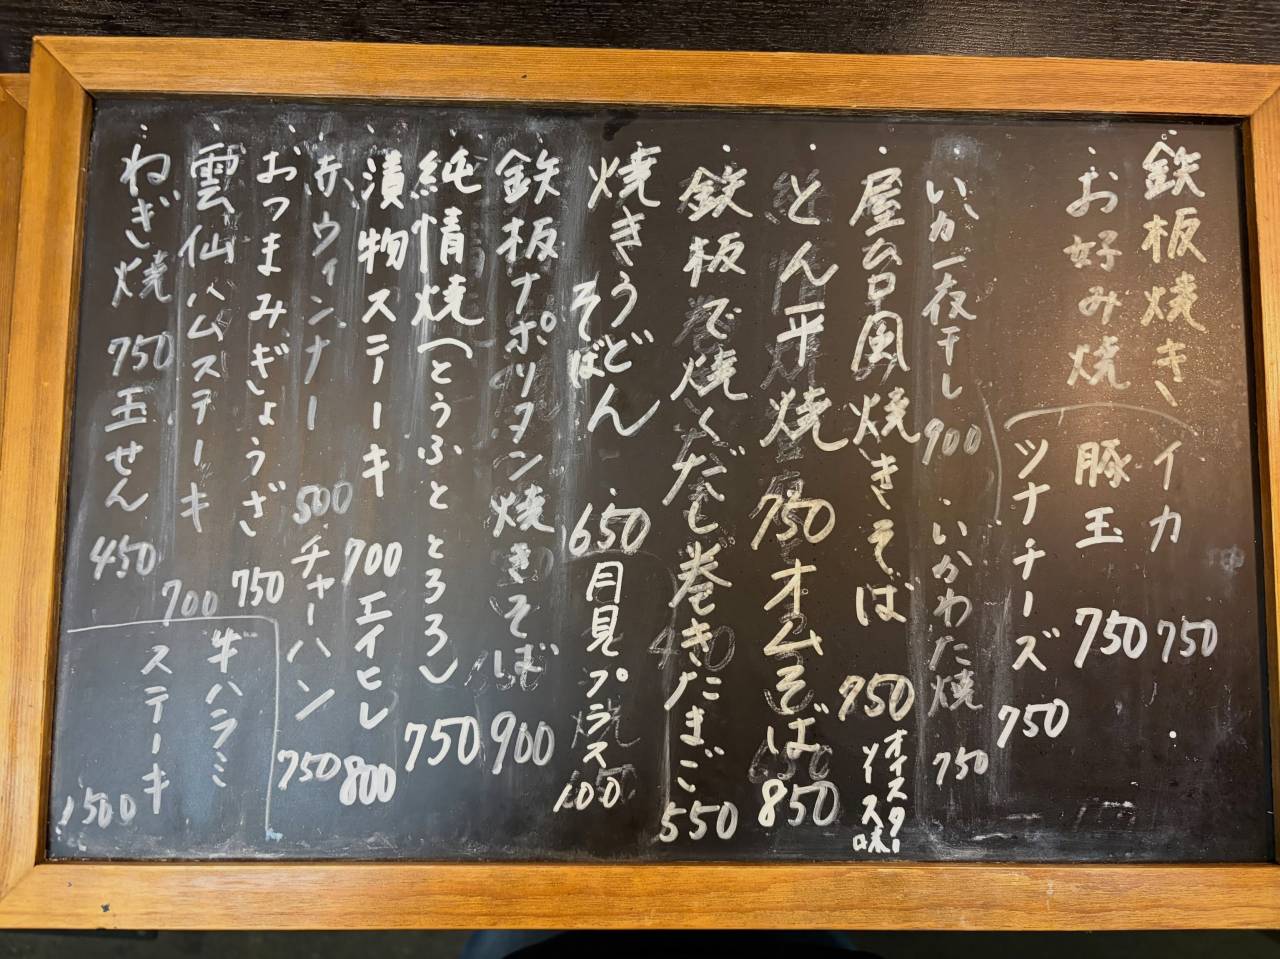 鉄板焼き
お好み焼
イカ 750
豚玉 750
ツナチーズ 750
いか一夜干し 900
・いかわた焼 750
・屋台風焼きそば 750
オイスターソース味
・とん平焼 750
オムそば 850
・鉄板で焼くだし巻きたまご 550
・焼きうどん
そばん 650
・月見プラス 100
・鉄板ナポリタン焼きそば 900
・純情焼(とうふととろろ) 750
・漬物ステーキ 700
エイヒレ 800
・赤ウィンナー 500
チャーハン 750
・おつまみぎょうざ 750
・雲仙ハムステーキ 700
・ねぎ焼 750
玉せん 450
牛ハラミ
ステーキ 1500